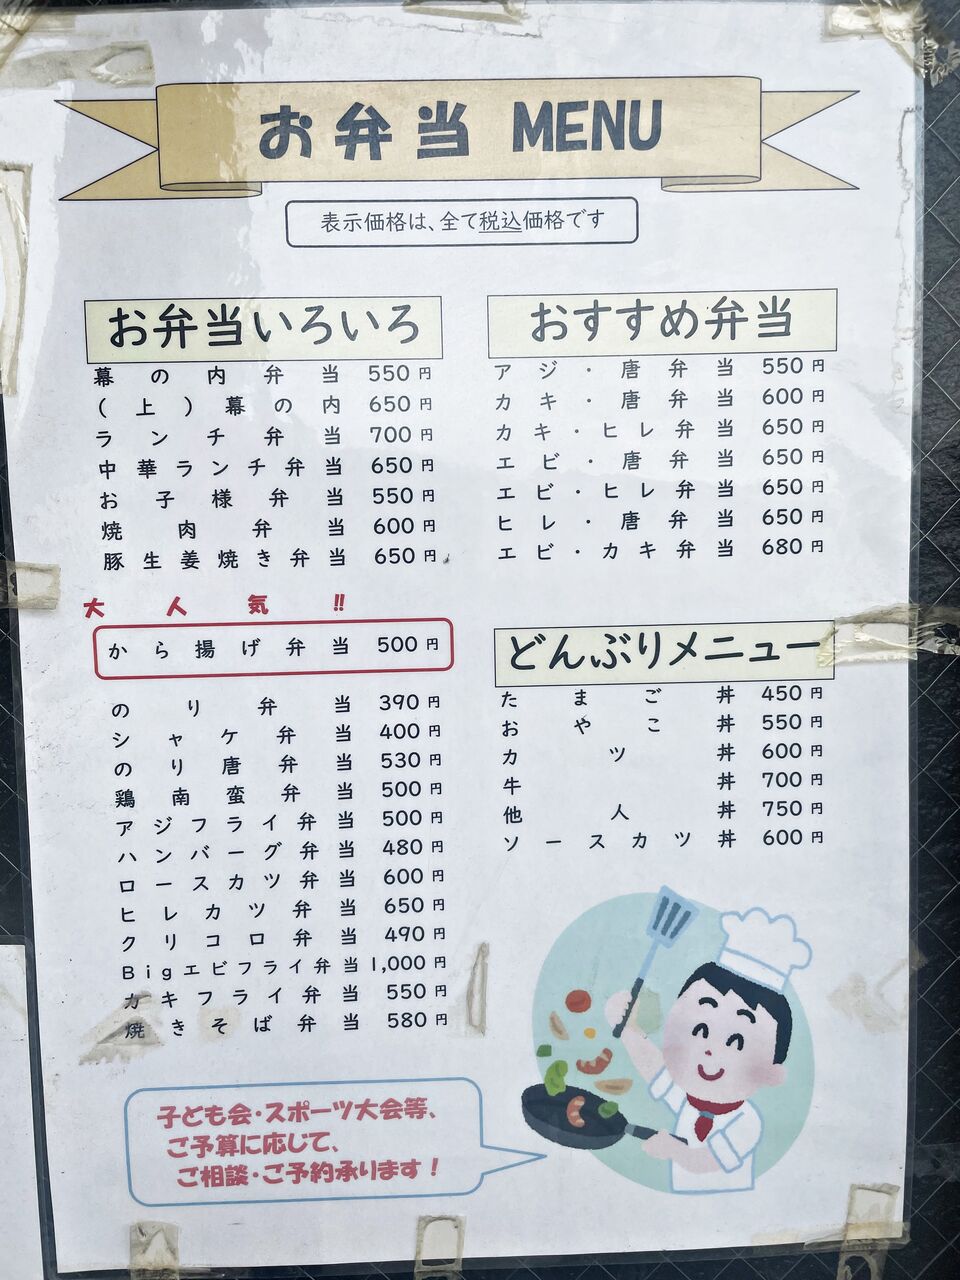 お弁当 MENU
表示価格は、全て税込価格です
お弁当いろいろ
幕の内弁当 550円
(上)幕の内 650円
ランチ弁当 700円
中華ランチ弁当 650円
お子様弁当 550円
焼肉弁当 600円
豚生姜焼き弁当 650円
大人気!!
から揚げ弁当 500円
のり弁当 390円
シャケ弁当 400円
のり唐弁当 530円
鶏南蛮弁当 500円
アジフライ弁当 500円
ハンバーグ弁当 480円
ロースカツ弁当 600円
ヒレカツ弁当 650円
クリコロ弁当 490円
Bigエビフライ弁当 1,000円
カキフライ弁当 550円
焼きそば弁当 580円
おすすめ弁当
アジ・唐弁当 550円
カキ・唐弁当 600円
カキ・ヒレ弁当 650円
エビ・唐弁当 650円
エビ・ヒレ弁当 650円
ヒレ・唐弁当 650円
エビ・カキ弁当 680円
どんぶりメニュー
たまご丼 450円
おやこ丼 550円
カツ丼 600円
牛丼 700円
他人丼 750円
ソースカツ丼 600円
子ども会・スポーツ大会等、
ご予算に応じて、
ご相談・ご予約承ります!